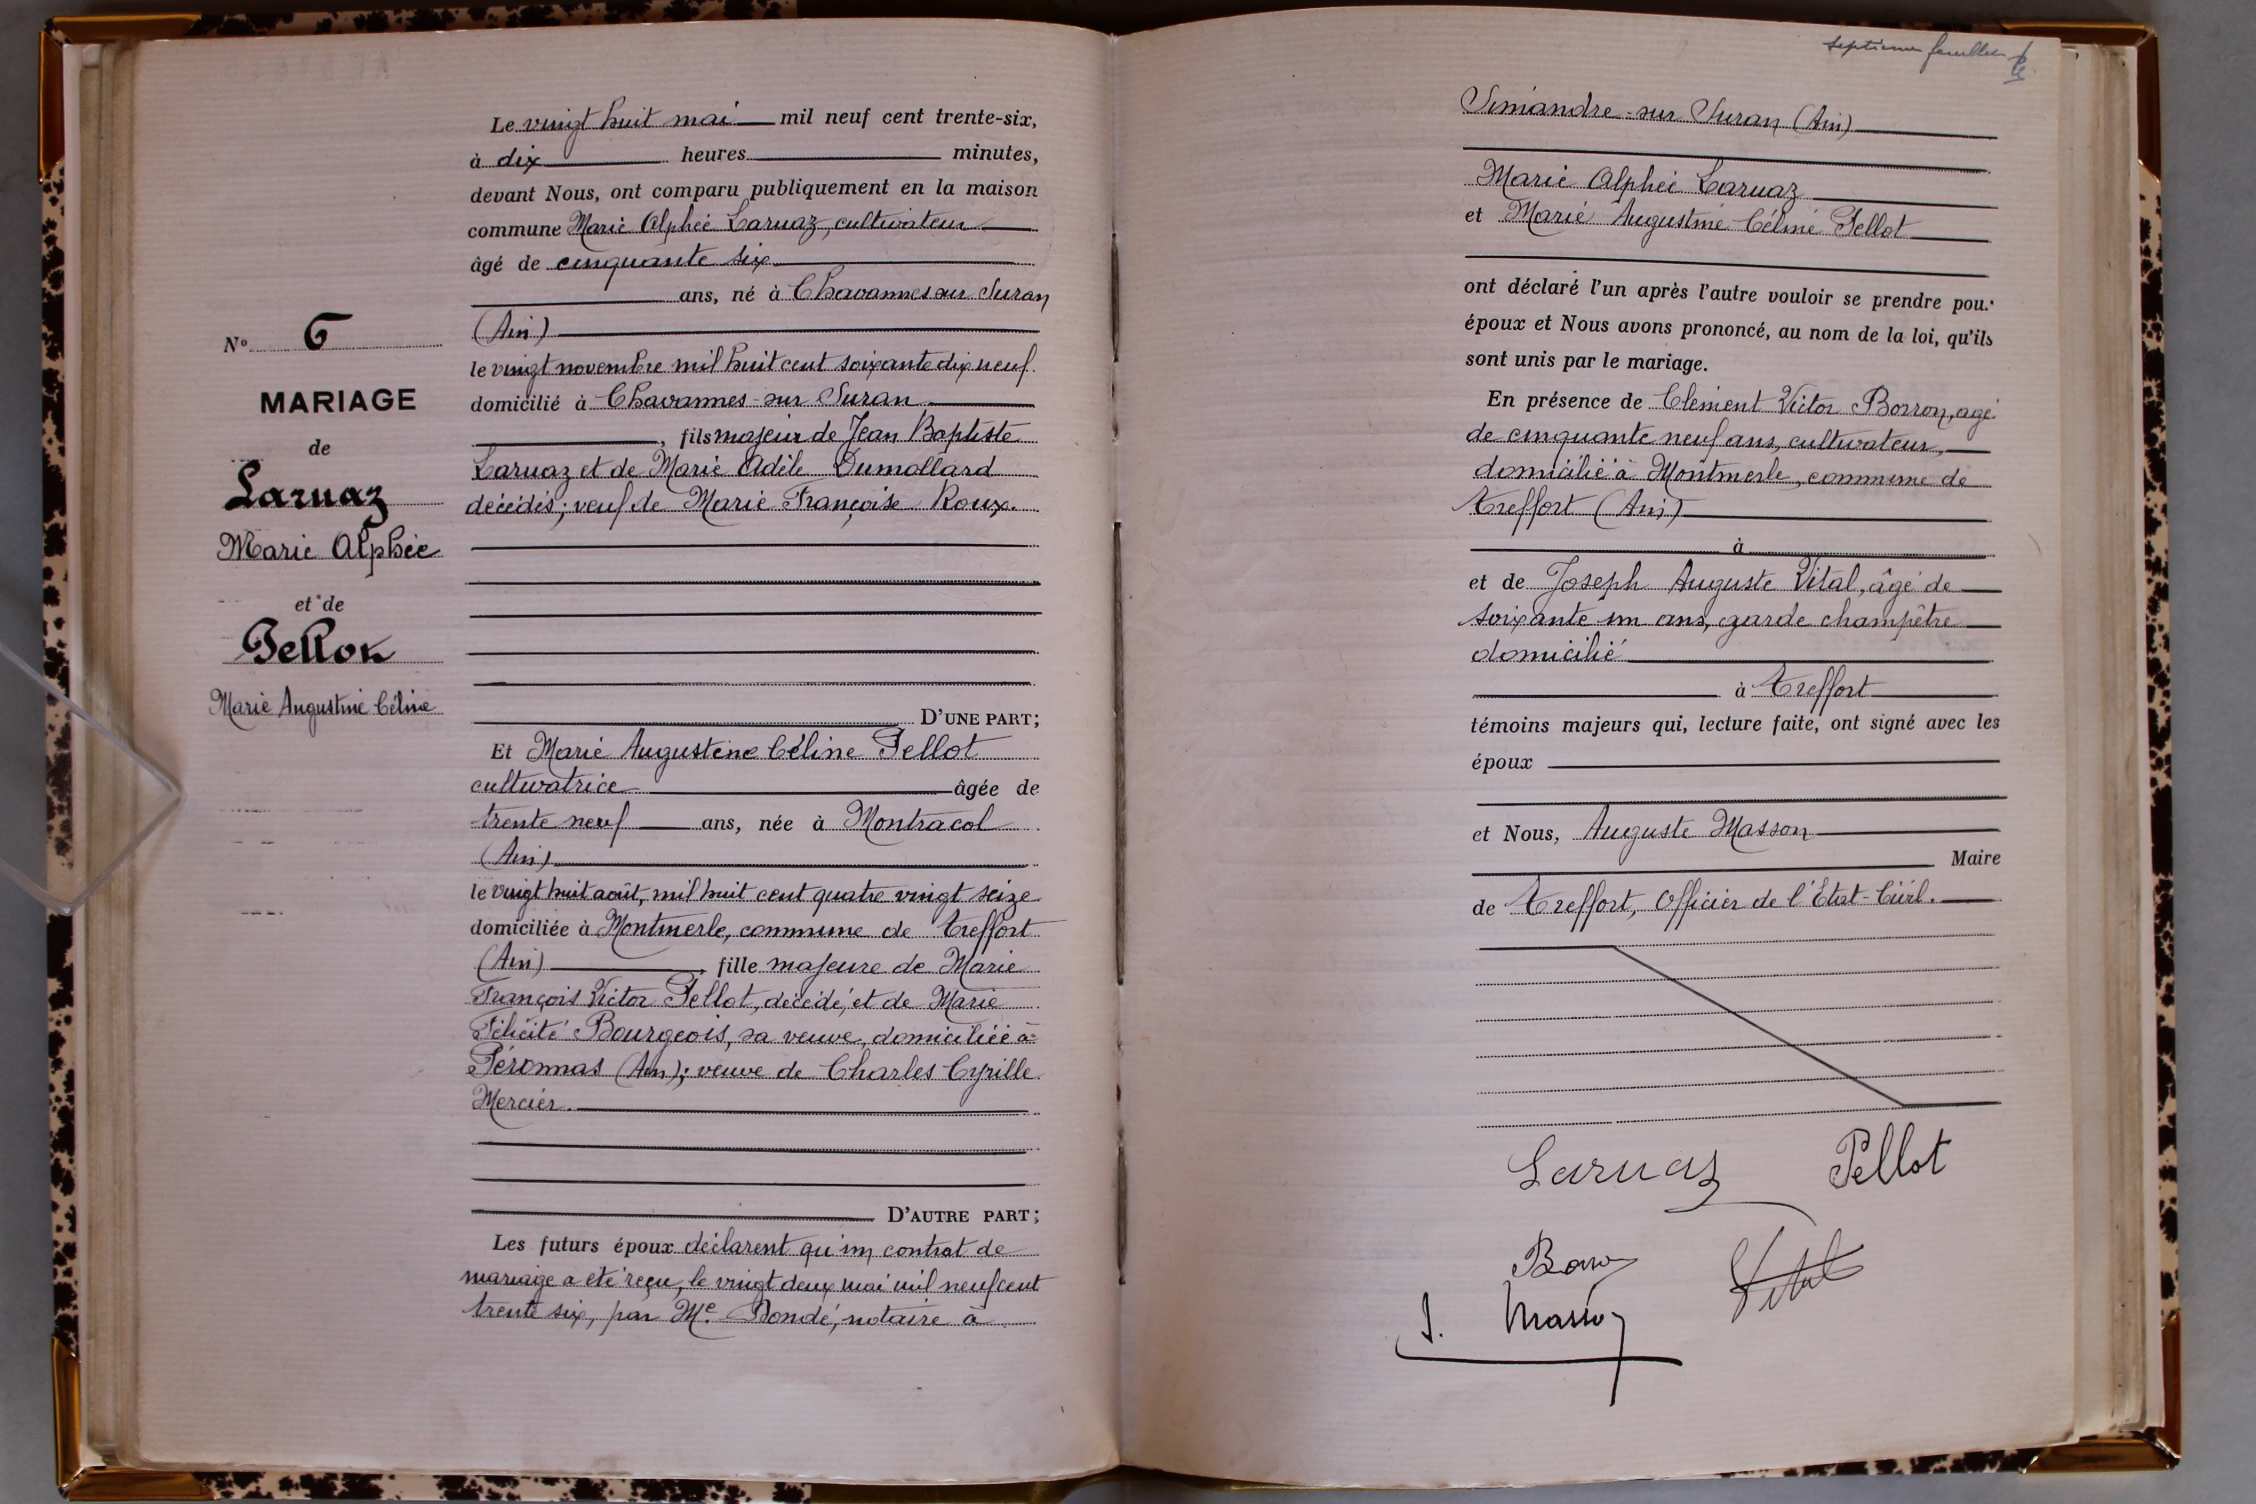 N° 6
MARIAGE
de
Laruaz
Marie Alphée
et de
Pellot
Marie Augustine Céline
Le vingt huit mai mil neuf cent trente-six,
à dix heures minutes,
devant Nous, ont comparu publiquement en la maison
commune Marie Alphée Laruaz, cultivateur
âgé de cinquante six
ans, né à Chavannes sur Suran
(Ain)
le vingt novembre mil huit cent soixante dix neuf
domicilié à Chavannes-sur Suran
, fils majeur de Jean Baptiste
Laruaz et de Marie Adèle Dumollard
décédés; veuf de Marie Françoise Roux.
D'UNE PART;
Et Marie Augustine Céline Pellot
cultivatrice âgée de
trente neuf ans, née à Montracol
(Ain)
le vingt huit août, mil huit cent quatre vingt seize
domiciliée à Montmerle, commune de Treffort
(Ain), fille majeure de Marie
François Victor Pellot, décédé, et de Marie
Félicité Bourgeois, sa veuve, domiciliée à
Péronnas (Ain); veuve de Charles Cyrille
Mercier.
D'AUTRE PART;
Les futurs époux déclarent qu'un contrat de
mariage a été reçu, le vingt deux mai mil neuf cent
trente six, par Me Dondé, notaire à
septième feuillet
Simandre-sur Suran (Ain)
Marie Alphée Laruaz
et Marie Augustine Céline Pellot
ont déclaré l'un après l'autre vouloir se prendre pour
époux et Nous avons prononcé, au nom de la loi, qu'ils
sont unis par le mariage.
En présence de Clément Victor Borron, agé
de cinquante neuf ans, cultivateur,
domicilié à Montmerle, commune de
Treffort (Ain)
à
et de Joseph Auguste Vital, âgé de
soixante un ans, garde champêtre
domicilié
à Treffort
témoins majeurs qui, lecture faite, ont signé avec les
époux
et Nous, Auguste Masson
Maire
de Treffort, Officier de l'Etat-Civil.
Laruaz Pellot
Vital
J. Masson